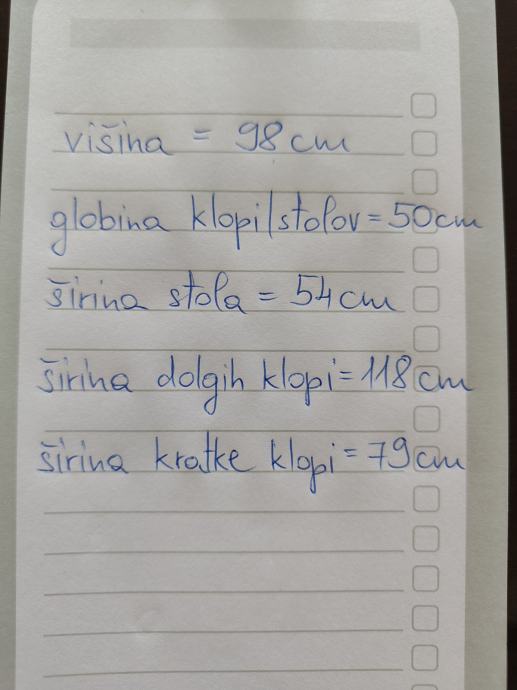 višina = 98 cm
globina klopi/stolov = 50cm
širina stola = 54 cm
širina dolgih klopi = 118 cm
širina kratke klopi = 79 cm